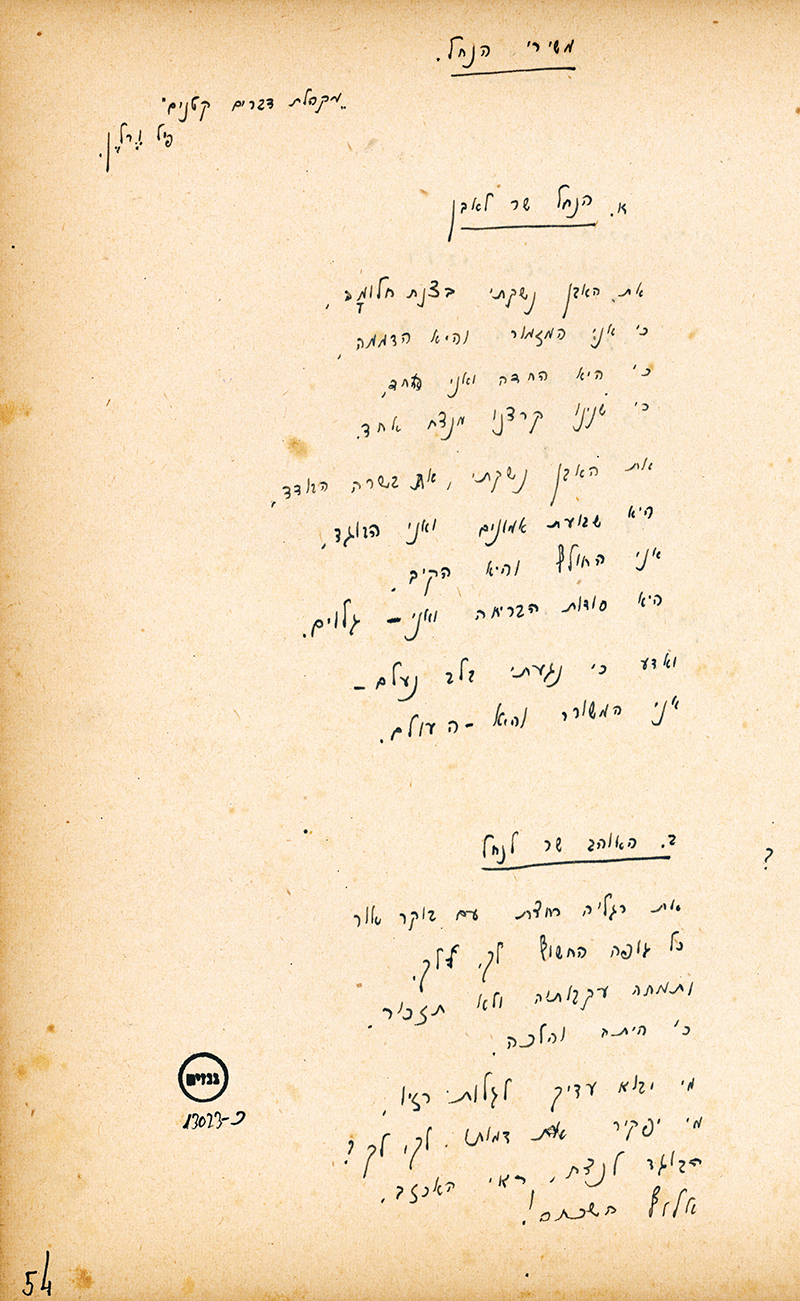 משירי הנחל.
"מקהלת דברים קטנים"
פול ורלין.
א. הנחל שר לאבן
את האבן נשקתי בצנת חלומה,
כי אני המזמור והיא הדממה,
כי היא החדה ואני החד,
כי שנינו קרצנו מנצח אחד.
את האבן נשקתי, את בשרה הבודד,
היא שבועת אמונים ואני הבוגד,
אני החולף והיא הקיב.
היא סודות הבריאה ואני – גלוים.
ואדע כי נגעתי בלב נעלם –
אני המשורר והיא – העולם.
ב. האוהב שר לנחל
?
את רגליה רחצת עם בוקר אור
כל גופה החשוף לך,
ותמחה עקבותיה ולא תזכור,
כי היתה והלכה.
מי יבוא עדיך לגלות רזיו,
מי יפקיר את דמותו לך, לך?
הבוגד לנצח, ראי האכזב,
אלוף השכחה!
גנזים
13023-כ
54